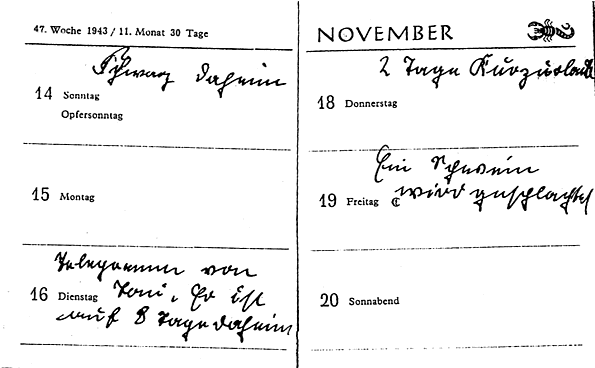 47. Woche 1943 / 11. Monat 30 Tage
Schwarz daheim
14 Sonntag
Opfersonntag
15 Montag
Telegramm von
16 Dienstag Toni. Er ist
auf 8 Tage daheim
NOVEMBER
2 Tage Kurzurlaub
18 Donnerstag
Ein Schwein
19 Freitag ☾ wird geschlachtet
20 Sonnabend